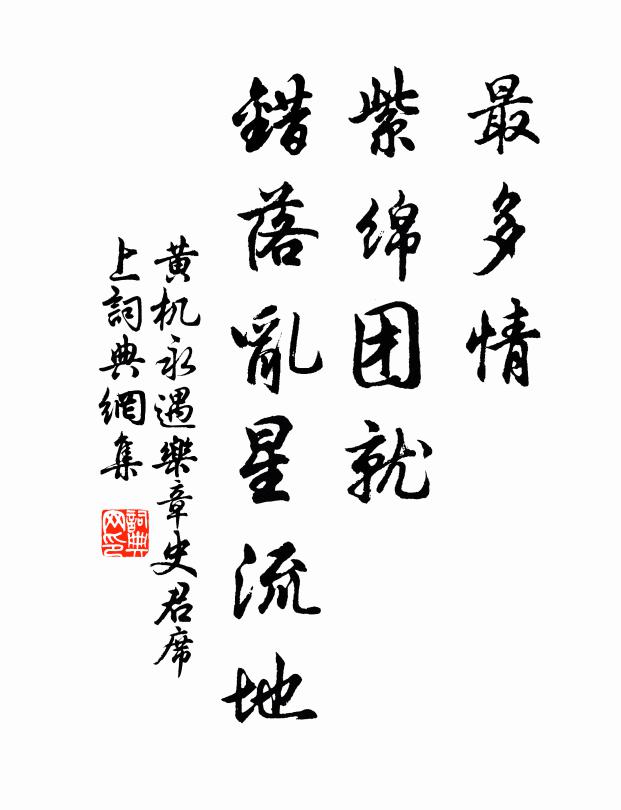 最多情
紫绵团就
錯落亂星流地
黄机永遇樂章史君席
上詞典網集
詞典网印